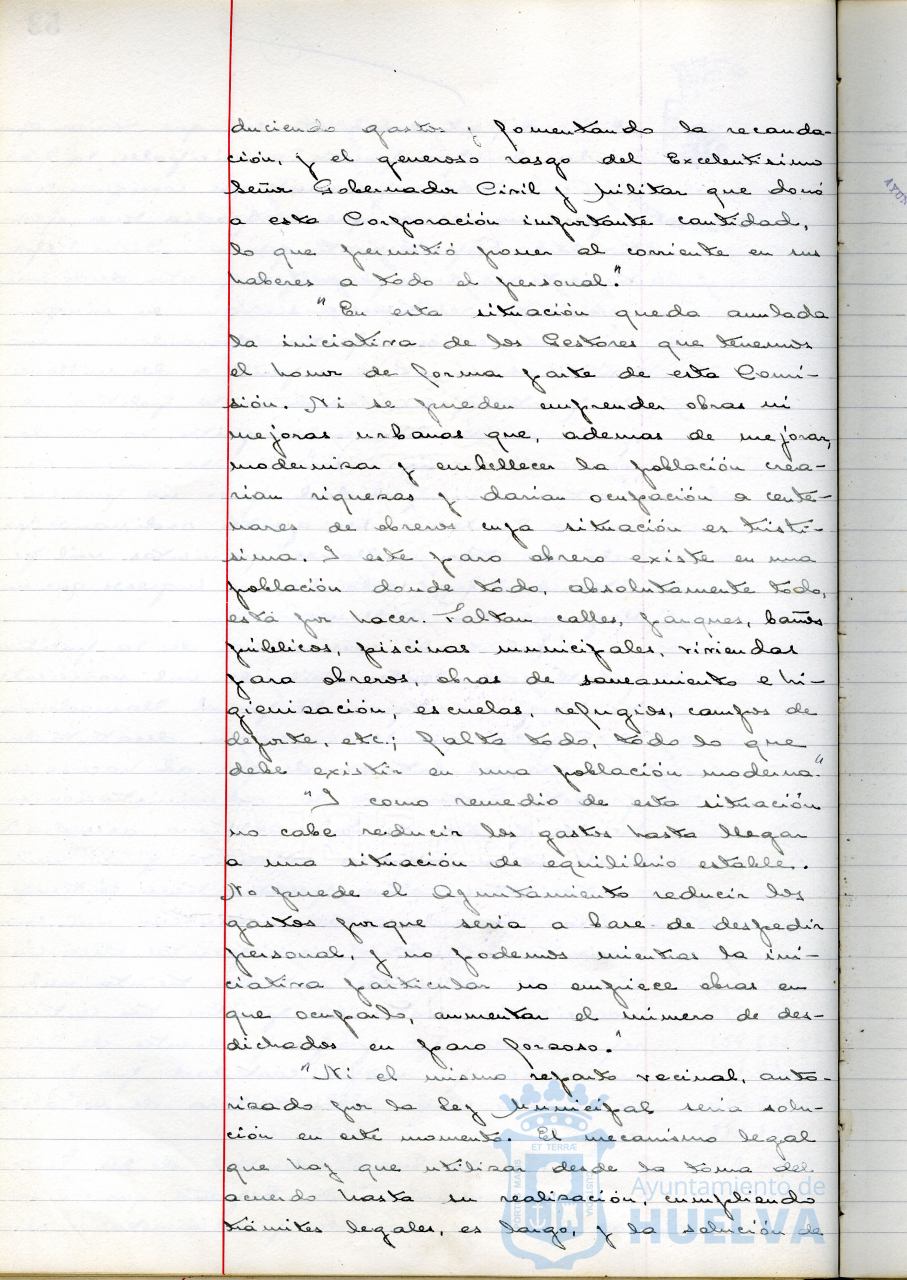 duciendo gastos y fomentando la recauda-
ción, y el generoso rasgo del Excelentísimo
Señor Gobernador Civil y Militar que donó
a esta Corporación importante cantidad,
lo que permitió poner al corriente en sus
haberes a todo el personal."
"En esta situación queda anulada
la iniciativa de los Gestores que tenemos
el honor de forma parte de esta Comi-
sión. Ni se pueden emprender obras ni
mejoras urbanas que, ademas de mejorar,
modernizar y embellecer la población crea-
rian riquezas y darian ocupación a cente-
nares de obreros cuya situación es tristí-
sima. Y este paro obrero existe en una
población donde todo, absolutamente todo,
está por hacer. Faltan calles, parques, baños
públicos, piscinas municipales, viviendas
para obreros, obras de saneamiento e hi-
gienización, escuelas, refugios, campos de
deporte, etc.; falta todo, todo lo que
debe existir en una población moderna."
"Y como remedio de esta situación
no cabe reducir los gastos hasta llegar
a una situación de equilibrio estable.
No puede el Ayuntamiento reducir los
gastos porque seria a base de despedir
personal, y no podemos mientras la ini-
ciativa particular no empiece obras en
que ocuparlo, aumentar el número de des-
dichados en paro forzoso."
"Ni el mismo reparto vecinal, auto-
rizado por la Ley Municipal seria solu-
ción en este momento. El mecanismo legal
que hay que utilizar desde la toma del
acuerdo hasta su realización, cumpliendo
trámites legales, es largo, y la solución de
ET TERRÆ
Ayuntamiento de
HUELVA